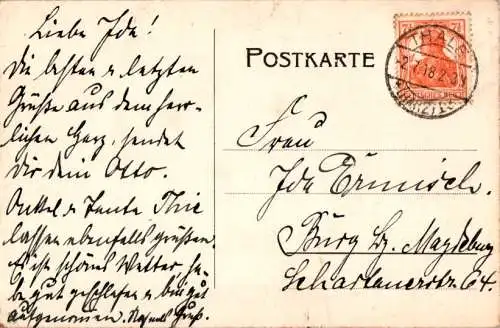 Liebe Ida!
Die besten u letzten
Grüße aus dem herr-
lichen Harz, sendet
Dir dein Otto.
Onkel u Tante Thie
lassen ebenfalls grüßen.
Es ist schönes Wetter, ha-
be gut geschlafen u bin gut
aufgenommen. Nochmals Gruß.
POSTKARTE
THALE
2.7.18
(HARZ)
Frau
Ida Ermisch.
Burg Bz. Magdeburg
Schartauerstr 64.